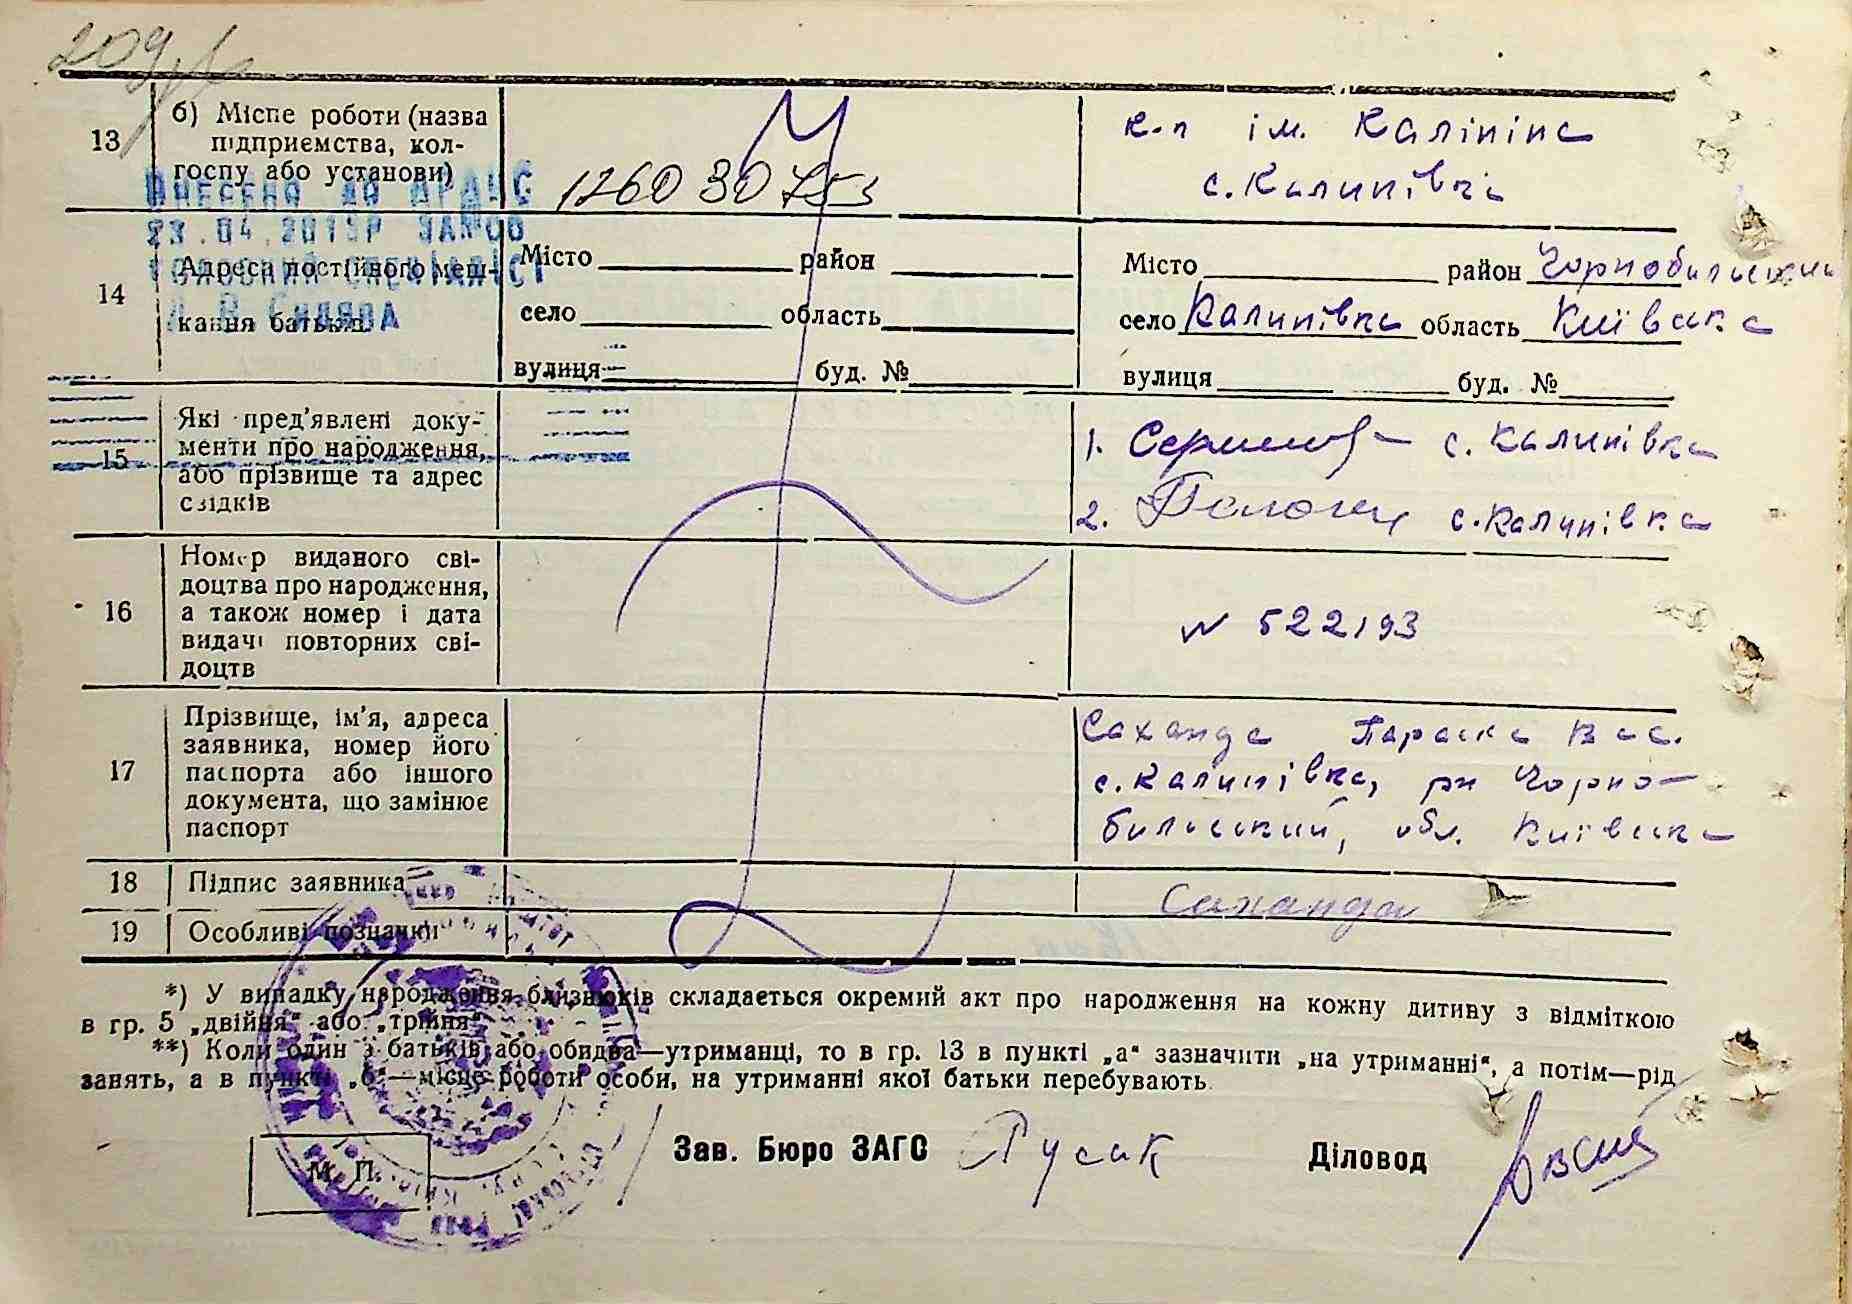 209
13
б) Місце роботи (назва
підприємства, кол-
госпу або установи)
1260 30 753
к-п ім. Калініна
с. Калинівка
ВНЕСЕНО ДО ДРАЦС
23.04.2013Р
14
Адреса постійного меш-
кання батьків
Місто район
село область
вулиця буд. №
Місто район Чорнобильський
село Калинівка область Київська
вулиця буд. №
15
Які пред'явлені доку-
менти про народження,
або прізвище та адрес
свідків
1. с. Калинівка
2. с. Калинівка
16
Номер виданого сві-
доцтва про народження,
а також номер і дата
видачі повторних сві-
доцтв
№ 522193
17
Прізвище, ім'я, адреса
заявника, номер його
паспорта або іншого
документа, що замінює
паспорт
Саханда Параска Вас.
с. Калинівка, рн Чорно-
бильський, обл. Київська
18
Підпис заявника
Саханда
19
Особливі позначки
*) У випадку народження близнюків складається окремий акт про народження на кожну дитину з відміткою
в гр. 5 „двійня“ або „трійня“
**) Коли один з батьків або обидва—утриманці, то в гр. 13 в пункті „а“ зазначити „на утриманні“, а потім—рід
занять, а в пункті „б“—місце роботи особи, на утриманні якої батьки перебувають.
М. П.
Зав. Бюро ЗАГС Русак Діловод